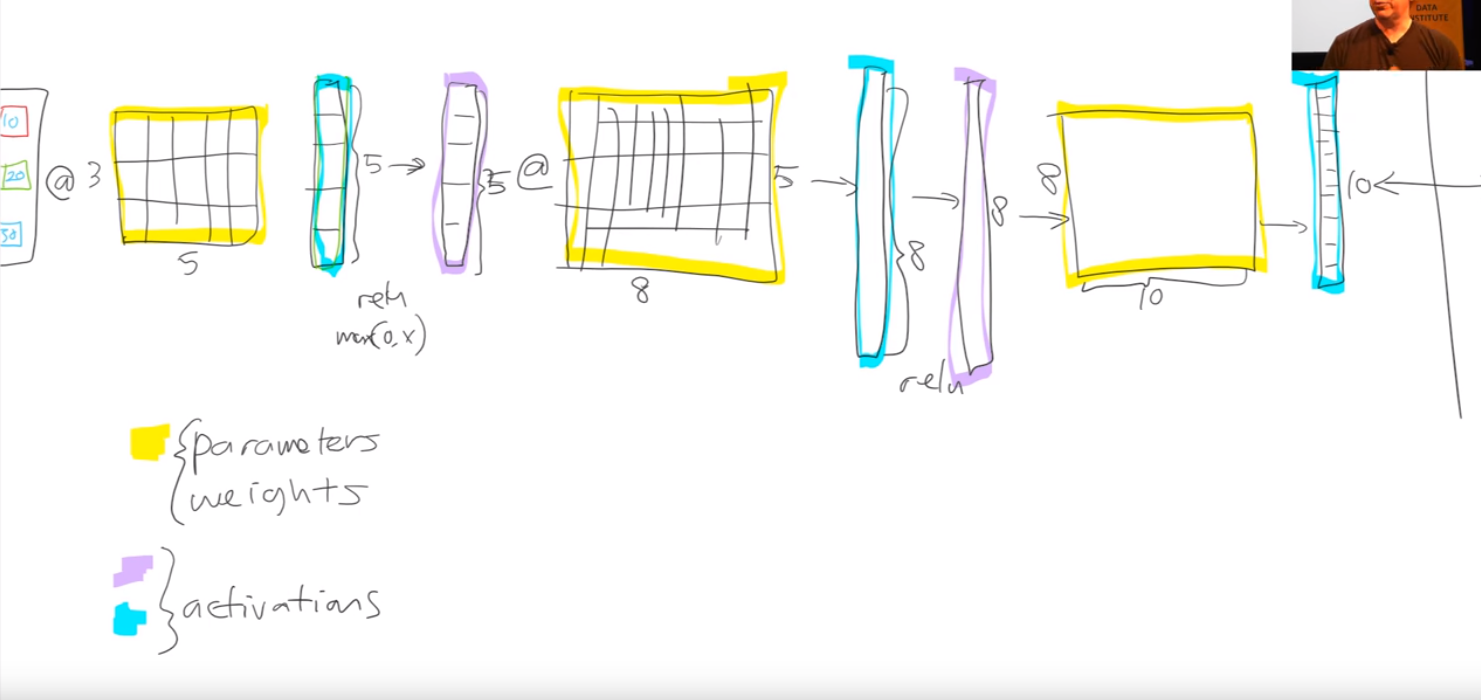 DATA
INSTITUTE
10
20
30
@ 3
5
5
relu
max(0,x)
5
@
5
8
8
relu
8
8
10
10
parameters
weights
activations